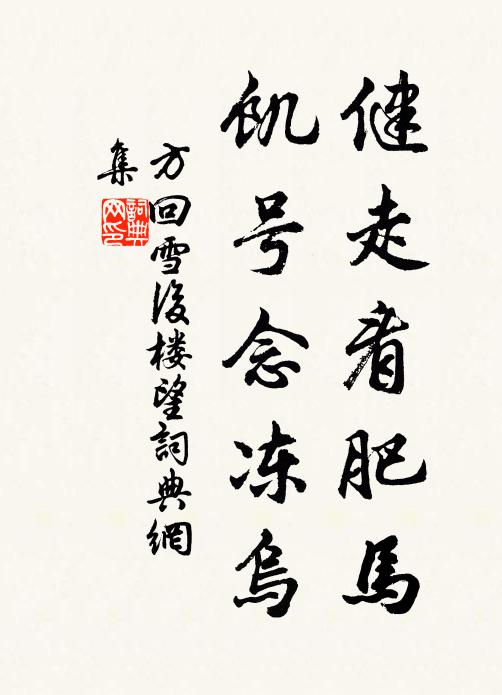 健走看肥馬
飢号念冻烏
方回雪後楼望詞典網
集
詞典
网印